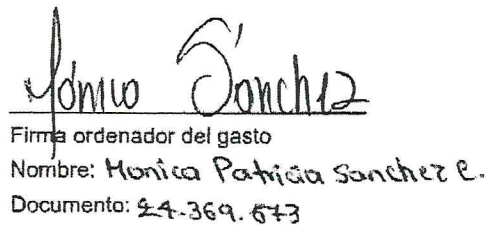 Mónica Sánchez
Firma ordenador del gasto
Nombre: Monica Patricia Sanchez C.
Documento: 24.369.673